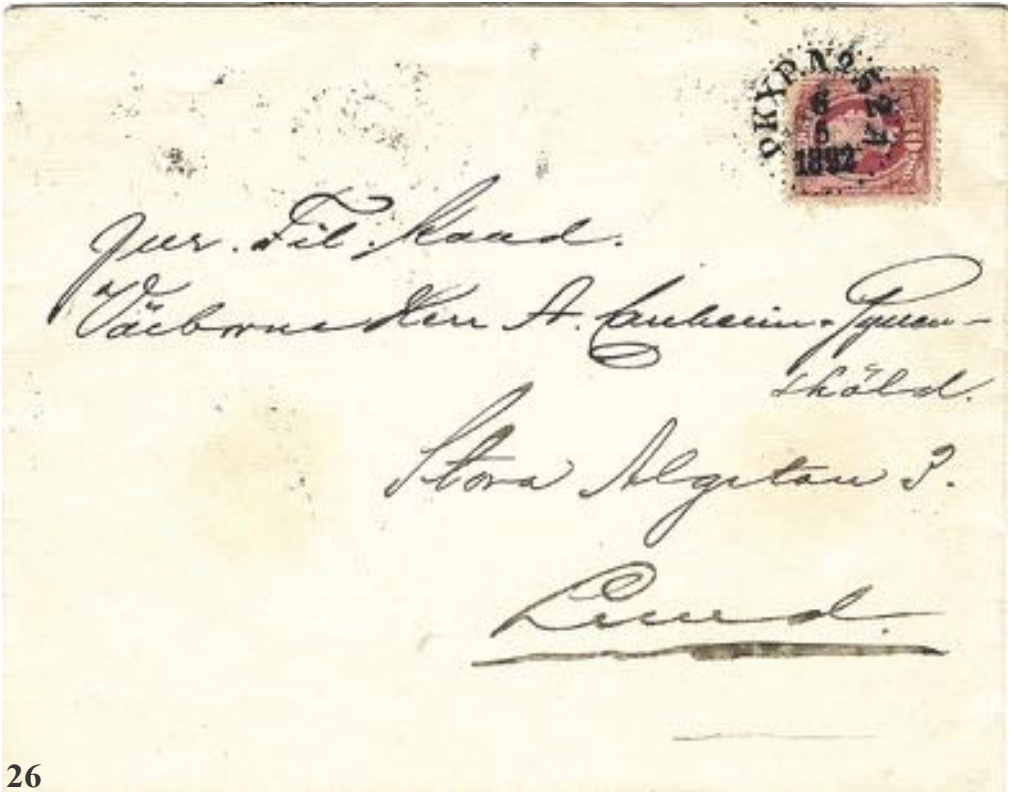 PKXP No 52 A
6
5
1892
10
Jur. Fil. Kand.
Välborne Herr A. Cronheim-Pyman-
sköld.
Stora Algatan 3.
Lund.
26